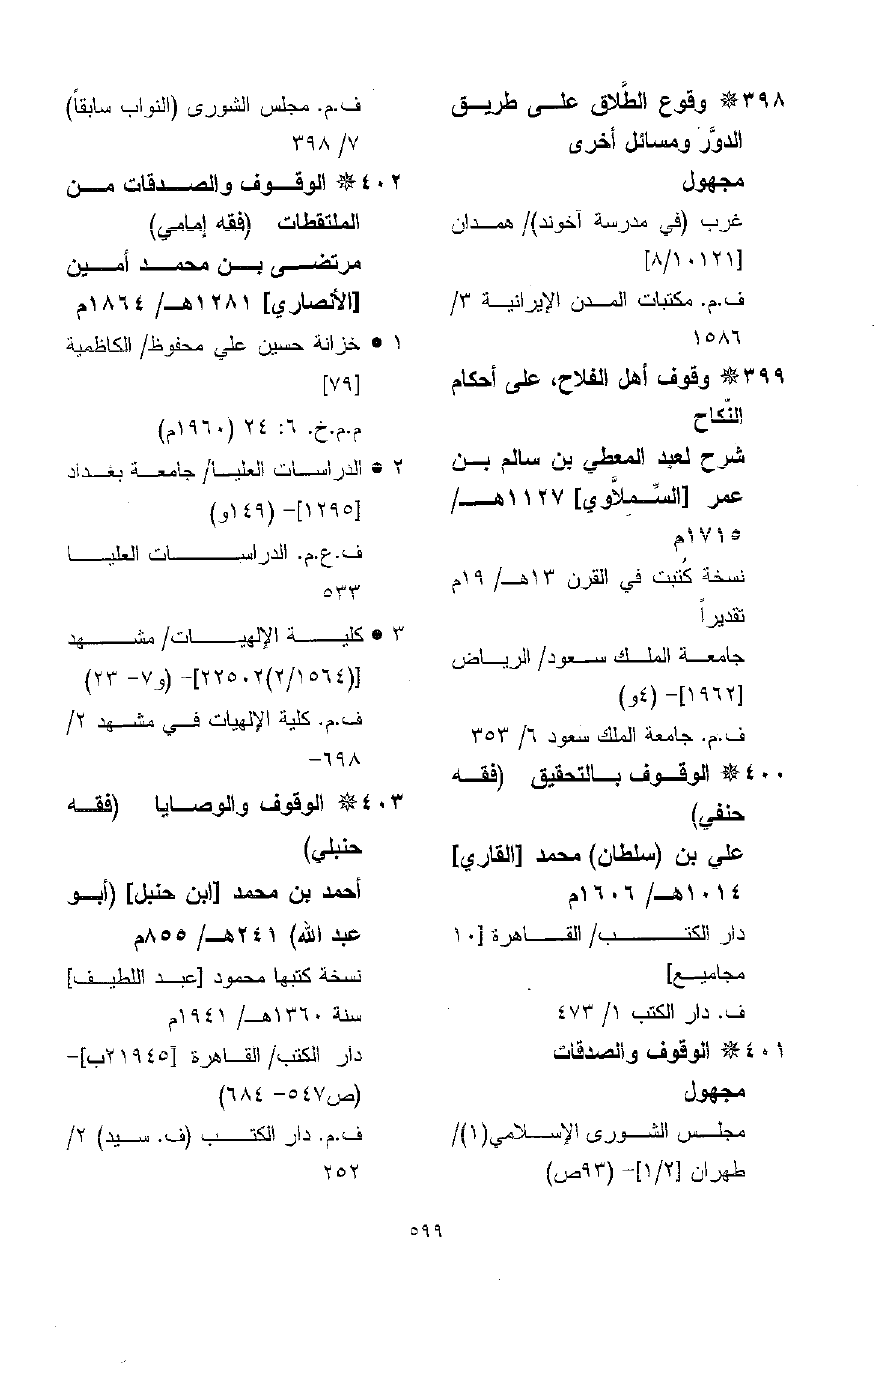 ٣٩٨* وقوع الطَّلاق على طريق
الدوَّر ومسائل أخرى
مجهول
غرب (في مدرسة آخوند)/ همدان
[٨/١٠١٢١]
ف.م. مكتبات المدن الإيرانية ٣/
١٥٨٦
٣٩٩* وقوف أهل الفلاح، على أحكام
النّكاح
شرح لعبد المعطي بن سالم بن
عمر [السِّملاَّوي] ١١٢٧هـ/
١٧١٥م
نسخة كُتبت في القرن ١٣هـ/ ١٩م
تقديراً
جامعة الملك سعود/ الرياض
[١٩٦٢]- (٤و)
ف.م. جامعة الملك سعود ٦/ ٣٥٣
٤٠٠* الوقوف بالتحقيق (فقه
حنفي)
علي بن (سلطان) محمد [القاري]
١٠١٤هـ/ ١٦٠٦م
دار الكتب/ القاهرة [١٠
مجاميع]
ف. دار الكتب ١/ ٤٧٣
٤٠١* الوقوف والصدقات
مجهول
مجلس الشورى الإسلامي(١)/
طهران [١/٢]- (٩٣ص)
ف.م. مجلس الشورى (النواب سابقاً)
٧/ ٣٩٨
٤٠٢* الوقوف والصدقات من
الملتقطات (فقه إمامي)
مرتضى بن محمد أمين
[الأنصاري] ١٢٨١هـ/ ١٨٦٤م
١ • خزانة حسين علي محفوظ/ الكاظمية
[٧٩]
م.م.خ. ٦: ٢٤ (١٩٦٠م)
٢ • الدراسات العليا/ جامعة بغداد
[١٢٩٥]- (١٤٩و)
ف.ع.م. الدراسات العليا
٥٣٣
٣ • كلية الإلهيات/ مشهد
[(٢/١٥٦٤)٢٢٥٠٢]- (و٧- ٢٣)
ف.م. كلية الإلهيات في مشهد ٢/
٦٩٨-
٤٠٣* الوقوف والوصايا (فقه
حنبلي)
أحمد بن محمد [ابن حنبل] (أبو
عبد الله) ٢٤١هـ/ ٨٥٥م
نسخة كتبها محمود [عبد اللطيف]
سنة ١٣٦٠هـ/ ١٩٤١م
دار الكتب/ القاهرة [٢١٩٤٥ب]-
(ص٥٤٧- ٦٨٤)
ف.م. دار الكتب (ف. سيد) ٢/
٢٥٢
٥٩٩